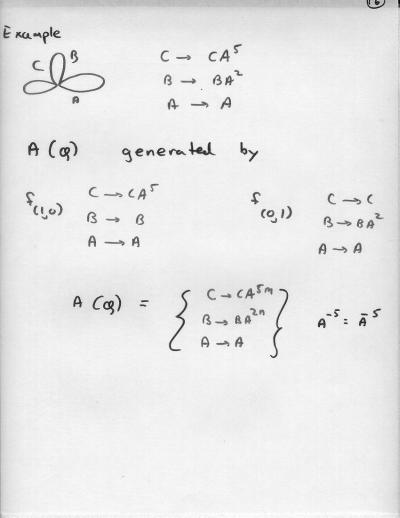 16
Example
C B A
C → CA⁵
B → BA²
A → A
A(φ) generated by
f(1,0) C → CA⁵ B → B A → A
f(0,1) C → C B → BA² A → A
A(φ) = { C → CA⁵ᵐ B → BA²ⁿ A → A } A⁻⁵ = Ā⁵